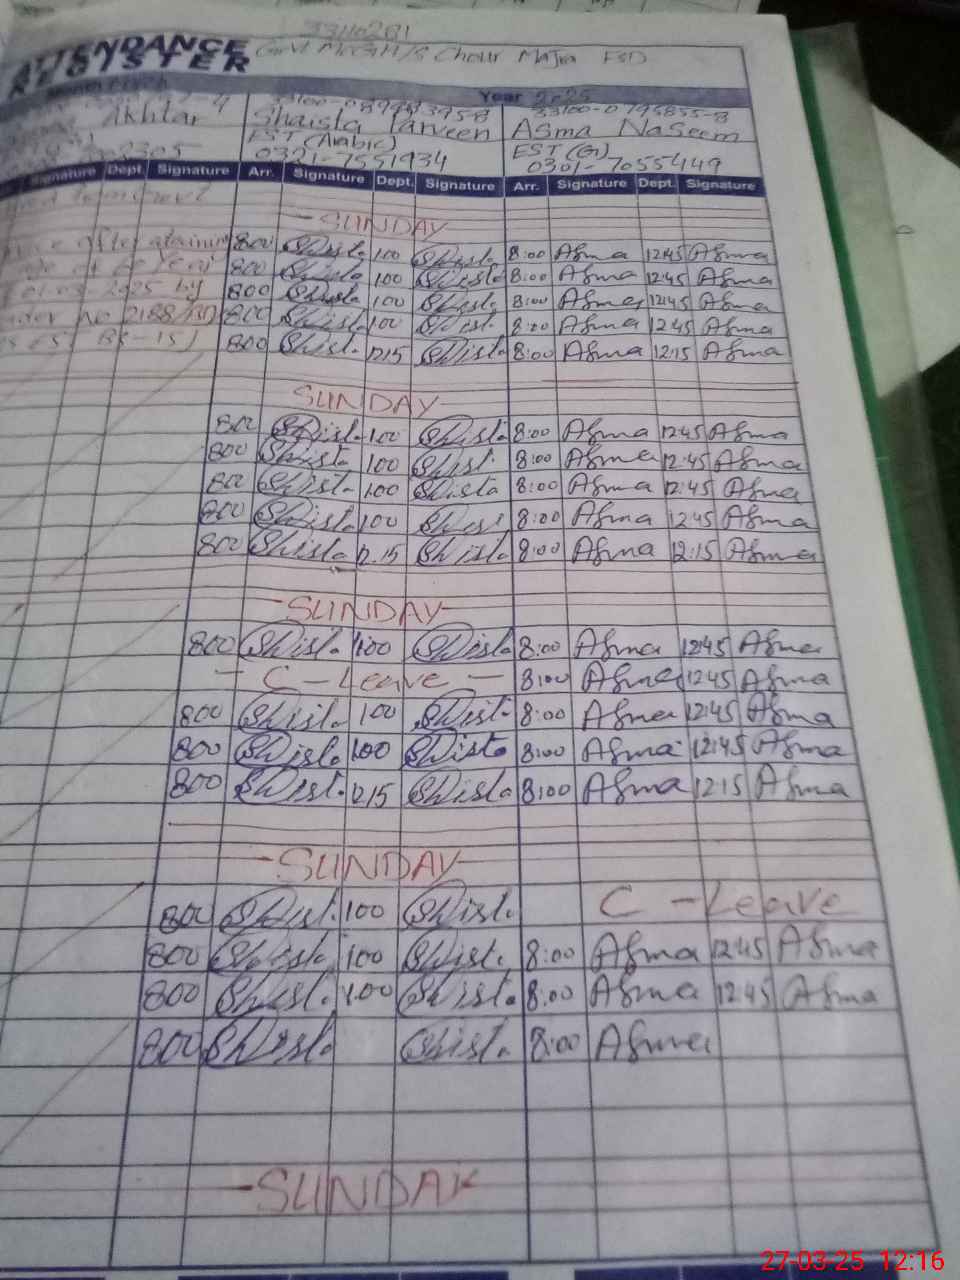 33110281
ATTENDANCE Govt MCGH/S Chour Majra FSD
REGISTER
Year 2025
33100-0795855-8
Akhtar Shaista Parveen ASma NaSeem
EST (Arabic) EST (G)
0321-7551934 0301-7055449
Signature Dept. Signature Arr. Signature Dept. Signature Arr. Signature Dept. Signature
SUNDAY
800 Shista 100 Shista 8:00 Asma 12:45 Asma
800 Shista 100 Shista 8:00 Asma 12:45 Asma
2025 by 800 Shista 100 Shista 8:00 Asma 12:45 Asma
800 Shista 100 Shist. 8:00 Asma 12:45 Asma
BS-15) 800 Shist. 1215 Shista 8:00 Asma 12:15 Asma
SUNDAY
800 Shist. 100 Shist. 8:00 Asma 12:45 Asma
800 Shista 100 Shist. 8:00 Asma 12:45 Asma
800 Shista 100 Shista 8:00 Asma 12:45 Asma
800 Shista 100 Shist 8:00 Asma 12:45 Asma
800 Shista 12.15 Shista 8:00 Asma 12:15 Asma
SUNDAY
800 Shist. 100 Shista 8:00 Asma 12:45 Asma
- C - Leave - 8:00 Asma 12:45 Asma
800 Shist. 100 Shist. 8:00 Asma 12:45 Asma
800 Shista 100 Shista 8:00 Asma 12:45 Asma
800 Shist. 1215 Shista 8:00 Asma 12:15 Asma
SUNDAY
800 Shist. 100 Shist. C - Leave
800 Shista 100 Shist. 8:00 Asma 12:45 Asma
800 Shista 100 Shista 8:00 Asma 12:45 Asma
800 Shista Shista 8:00 Asma
SUNDAY
27-03-25 12:16